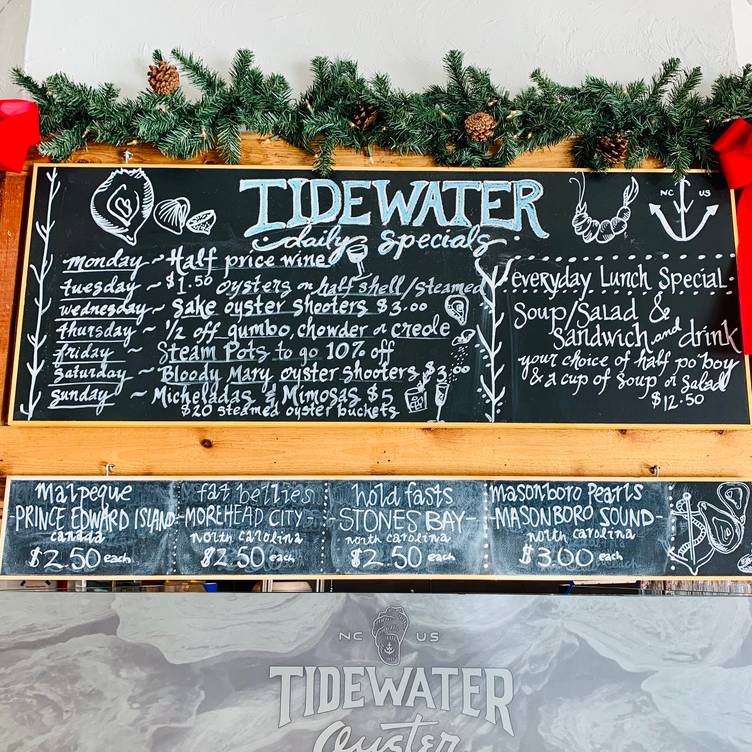 TIDEWATER
daily specials
NC US
Monday ~ Half price wine
tuesday ~ $1.50 oysters on half shell/steamed
wednesday ~ Sake oyster Shooters $3.00
thursday ~ 1/2 off gumbo, chowder or creole
friday ~ Steam Pots to go 10% off
Saturday ~ Bloody Mary oyster shooters $3.00
Sunday ~ Micheladas & Mimosas $5
$20 steamed oyster buckets
everyday Lunch Special
Soup/Salad &
Sandwich and drink
your choice of half po'boy
& a cup of soup or salad
$12.50
Malpeque
-PRINCE EDWARD ISLAND-
canada
$2.50 each
fat bellies
-MOREHEAD CITY-
north carolina
$2.50 each
hold fasts
-STONES BAY-
north carolina
$2.50 each
masonboro Pearls
-MASONBORO SOUND-
north carolina
$3.00 each
NC US
TIDEWATER
Oyster